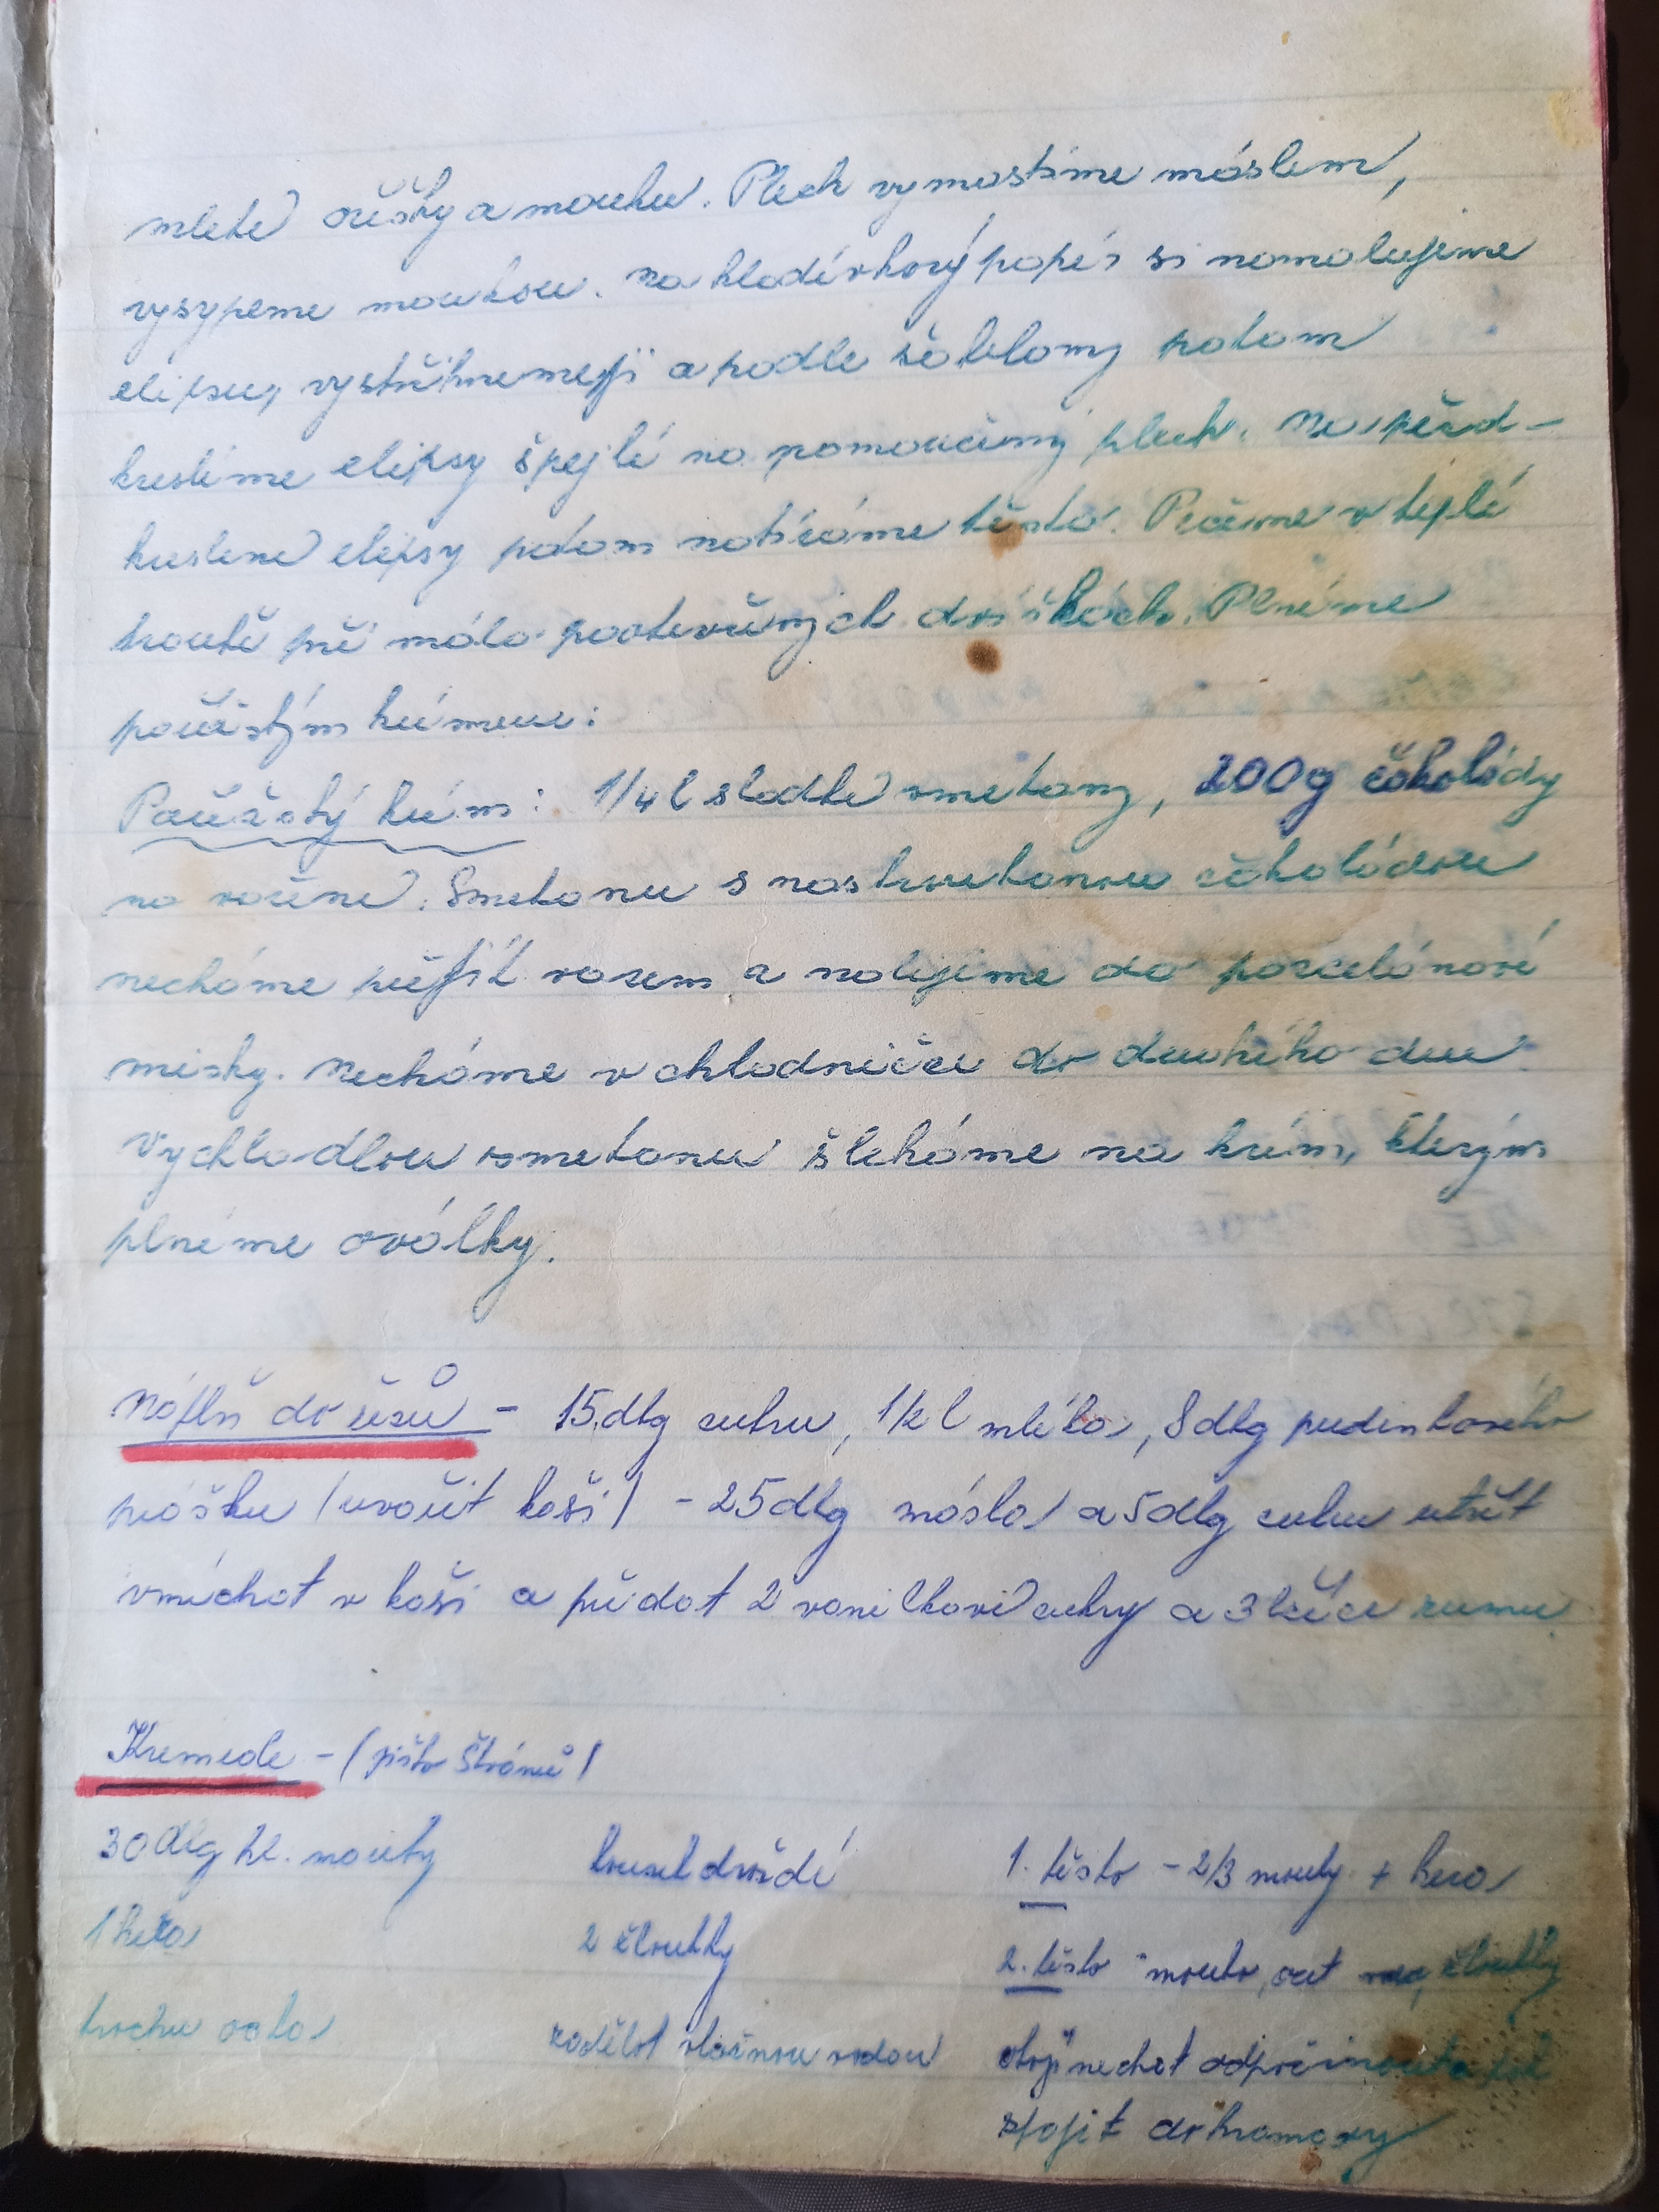 mleté oříšky a mouku. Plech vymastíme máslem,
vysypeme moukou. Na kladívkový papír si namalujeme
elipsu, vystřihneme ji a podle šablony potom
kreslíme elipsy špejlí na pomoučený plech. Na před-
kreslené elipsy potom natíráme těsto. Pečeme v teplé
troubě při málo pootevřených dvířkách. Plníme
pařížským krémem:
Pařížský krém: 1/4 l sladké smetany, 200g čokolády
na vaření. Smetanu s nastrouhanou čokoládou
necháme přejít varem a nalijeme do porcelánové
misky. Necháme v chladničce do druhého dne.
Vychladlou smetanu šleháme na krém, kterým
plníme oválky.
Náplň do řezů - 15 dkg cukru, 1/2 l mléka, 8 dkg pudinkového
prášku /uvařit kaši/ - 25 dkg másla a 5 dkg cukru utřít
vmíchat v kaši a přidat 2 vanilkové cukry a 3 lžíce rumu
Kremrole - /
30 dkg hl. mouky kousek droždí 1. těsto - 2/3 mouky + hera
1 hera 2 žloutky 2. těsto - mouka, ocet žloutky
trochu octa zadělat vlažnou vodou obojí nechat odpočinout a
spojit dohromady